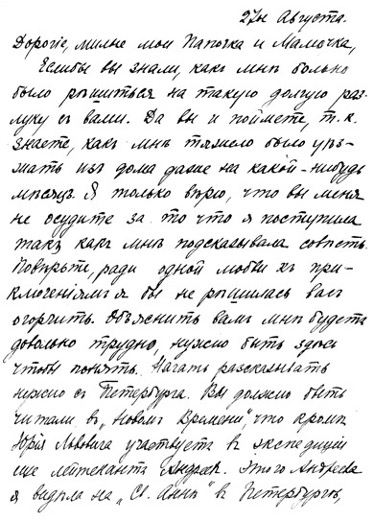 27го Августа.
Дорогіе, милые мои Папочка и Мамочка,
Еслибы вы знали, какъ мнѣ больно
было рѣшиться на такую долгую раз-
луку съ вами. Да вы и поймете, т. к.
знаете, какъ мнѣ тяжело было уѣз-
жать изъ дома даже на какой-нибудь
мѣсяцъ. Я только вѣрю, что вы меня
не осудите за то что я поступила
такъ какъ мнѣ подсказывала совѣсть.
Повѣрьте, ради одной любви къ при-
ключеніямъ я бы не рѣшилась васъ
огорчить. Объяснить вамъ мнѣ будетъ
довольно трудно, нужно быть здѣсь
чтобы понять. Начать разсказывать
нужно съ Петербурга. Вы должно быть
читали въ „Новомъ Времени", что кромѣ
Юрія Львовича участвуетъ въ экспедиціи
еще лейтенантъ Андреевъ. Этого Андреева
я видѣла на „Св. Аннѣ" въ Петербургѣ,